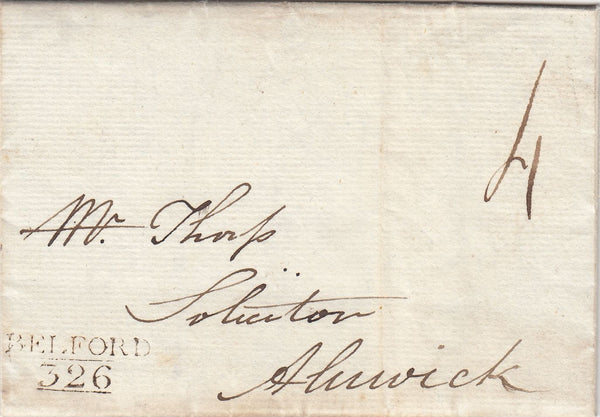 4
Mr. Thorp
Solicitor
Alnwick
BELFORD
326